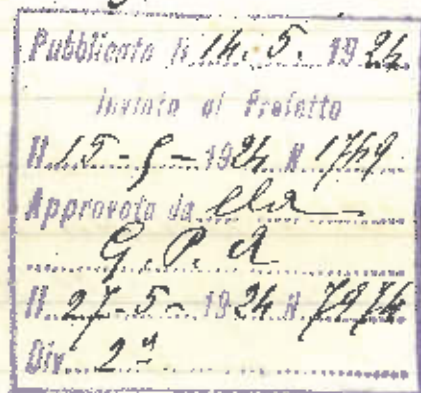 Pubblicata li 14. 5. 1924
Inviata al Prefetto
Il 15 - 5 - 1924 N 1769
Approvata da lla
G. P. A
Il 27 - 5 - 1924 N 7974
Div. 2ª